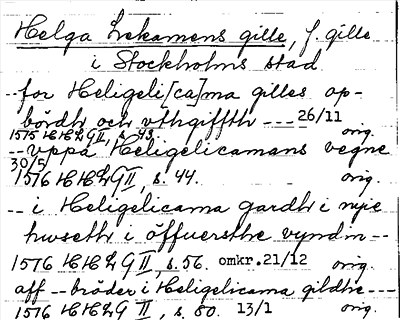 Helga Lekamens gille, f. gille
i Stockholms stad
-- for Heligeli[ca]ma gilles op-
bördh och vthgiffth --- 26/11
1575 HHLGII, s. 43. orig.
-- vppå Heligelicamans vegne
30/5
1576 HHLGII, s. 44. orig.
-- i Heligelicama gardh i nyie
hwseth i öffuersthe vyndin --
1576 HHLGII, s. 56. omkr. 21/12 orig.
aff -- bröder i Heligelicama gildhe ---
1576 HHLG II, s. 80. 13/1 orig.